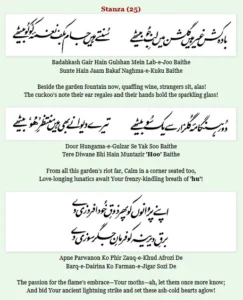 Stanza (25)
بادہ کش غیر ہیں گلشن میں لب جو بیٹھے
سنتے ہیں جام بکف نغمۂ کوکو بیٹھے
Badahkash Gair Hain Gulshan Mein Lab-e-Joo Baithe
Sunte Hain Jaam Bakaf Naghma-e-Kuku Baithe
Beside the garden fountain now, quaffing wine, strangers sit, alas!
The cuckoo's note their ear regales and their hands hold the sparkling glass!
دور ہنگامۂ گلزار سے یک سو بیٹھے
تیرے دیوانے بھی ہیں منتظر ھو بیٹھے
Door Hungama-e-Gulzar Se Yak Soo Baithe
Tere Diwane Bhi Hain Muntazir 'Hoo' Baithe
From all this garden's riot far, Calm in a corner seated too,
Love-longing lunatics await Your frenzy-kindling breath of 'hu'!
اپنے پروانوں کو پھر ذوق خود افروزی دے
برق دیرینہ کو فرمان جگر سوزی دے
Apne Parwanon Ko Phir Zauq-e-Khud Afrozi De
Barq-e-Dairina Ko Farman-e-Jigar Sozi De
The passion for the flame's embrace—Your moths—ah, let them once more know;
And bid Your ancient lightning strike and set these ash-cold hearts aglow!